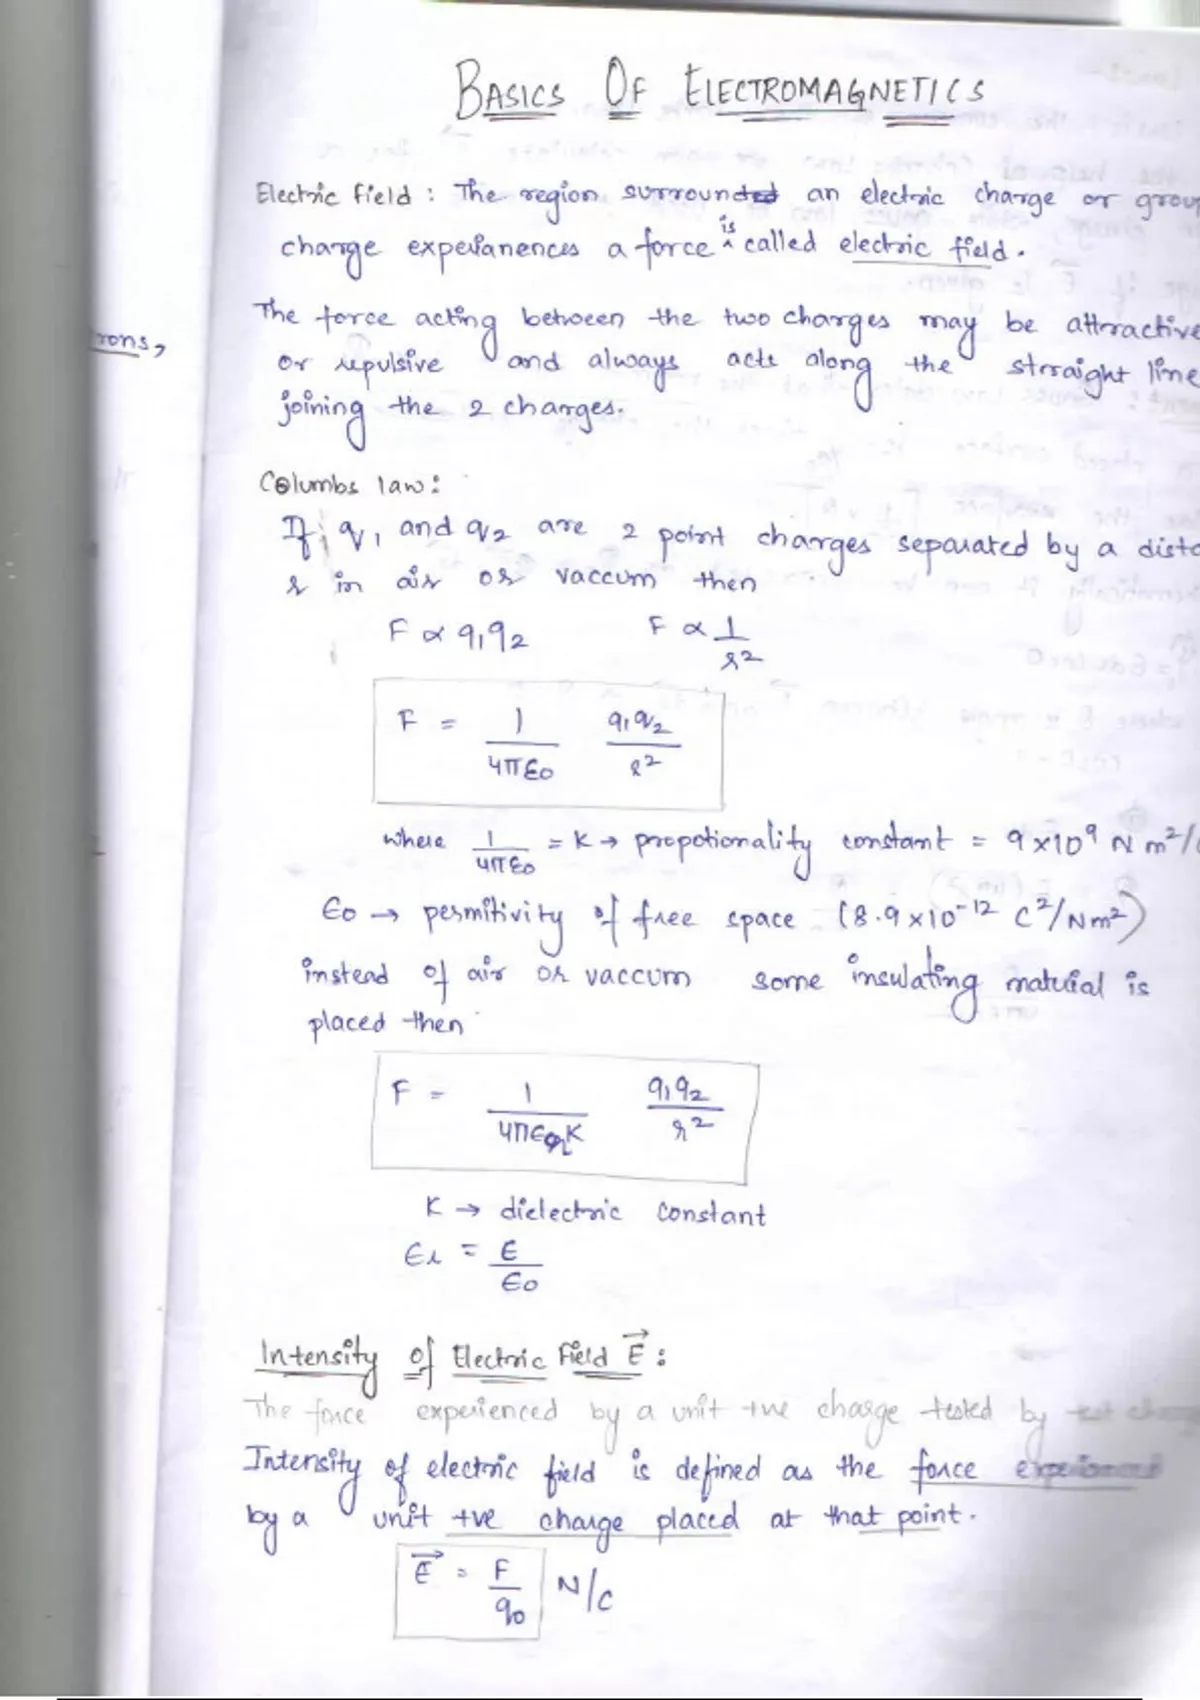 BASICS OF ELECTROMAGNETICS
Electric field : The region surrounded an electric charge or group
charge experiances a force is called electric field.
The force acting between the two charges may be attractive
or repulsive and always acts along the straight line
rons,
joining the 2 charges.
Columbs law:
If q1 and q2 are 2 point charges separated by a dista
r in air or vaccum then
F ∝ q1q2 F ∝ 1/r²
F = 1/4πε0 q1q2/r²
where 1/4πε0 = K → propotionality constant = 9×10⁹ N m²/
ε0 → permitivity of free space (8.9×10⁻¹² C²/Nm²)
instead of air or vaccum some insulating material is
placed then
F = 1/4πε0K q1q2/r²
K → dielectric constant
εr = ε/ε0
Intensity of Electric Field E⃗ :
The force experienced by a unit +ve charge tested by test charge
Intensity of electric field is defined as the force experienced
by a unit +ve charge placed at that point.
E⃗ = F/q0 N/C